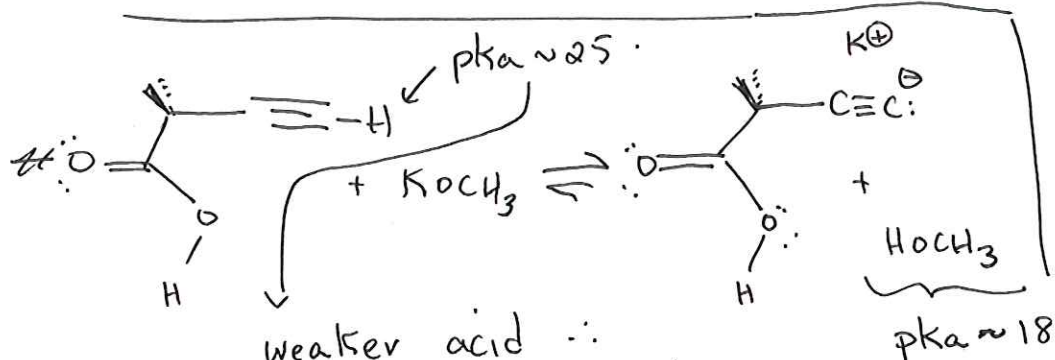 pka ~ 25
K⊕
⊖
—H
C≡C:
:O
+ KOCH3 ⇌
:O
+
O
O:
HOCH3
H
H
weaker acid ∴
pka ~ 18